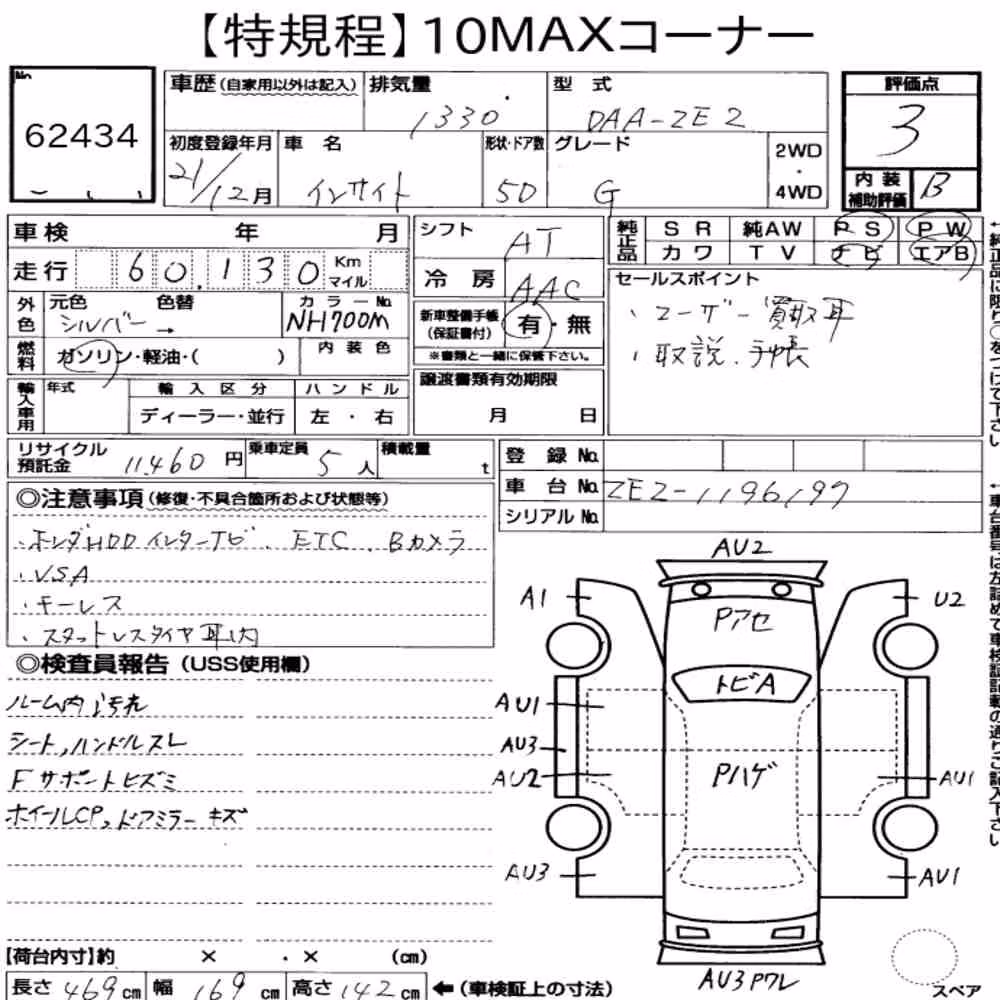 【特規程】10MAXコーナー
No.
62434
車歴(自家用以外は記入)
排気量
1330
型 式
DAA-ZE2
評価点
3
初度登録年月
21/12月
車 名
インサイト
形状・ドア数
5D
グレード
G
2WD
・
4WD
内 装
補助評価
B
車検 年 月
走行 60,130 Km
マイル
シフト
AT
冷 房
AAC
純正品
S R 純AW P S P W
カ ワ T V ナ ビ エアB
セールスポイント
・ユーザー買取車
・取説、手帳
外色
元色 色替
シルバー→
カラーNo.
NH700M
新車整備手帳
(保証書付)
有・無
※書類と一緒に保管下さい。
燃料
ガソリン・軽油・( )
内 装 色
輸入車用
年式
輸 入 区 分
ディーラー・並行
ハ ン ド ル
左 ・ 右
譲渡書類有効期限
月 日
リサイクル
預託金
11,460円
乗車定員
5人
積載量
t
登 録 No.
車 台 No. ZE2-1196197
シリアル No.
◎注意事項(修復・不具合箇所および状態等)
・ホンダHDDインターナビ、ETC、Bカメラ
・VSA
・キーレス
・スタットレスタイヤ車内
◎検査員報告(USS使用欄)
ルーム内汚れ
シート,ハンドルスレ
Fサポートヒズミ
ホイールCP,ドアミラーキズ
AU2
A1
U2
Pアセ
トビA
AU1
AU3
AU2
Pハゲ
AU1
AU3
AU1
AU3Pワレ
スペア
【荷台内寸】約 × ・ × (cm)
長さ 469cm 幅 169cm 高さ142cm ←(車検証上の寸法)
↑純正品に限り○をつけて下さい
↑車台番号は左詰めで車検証記載の通りご記入下さい